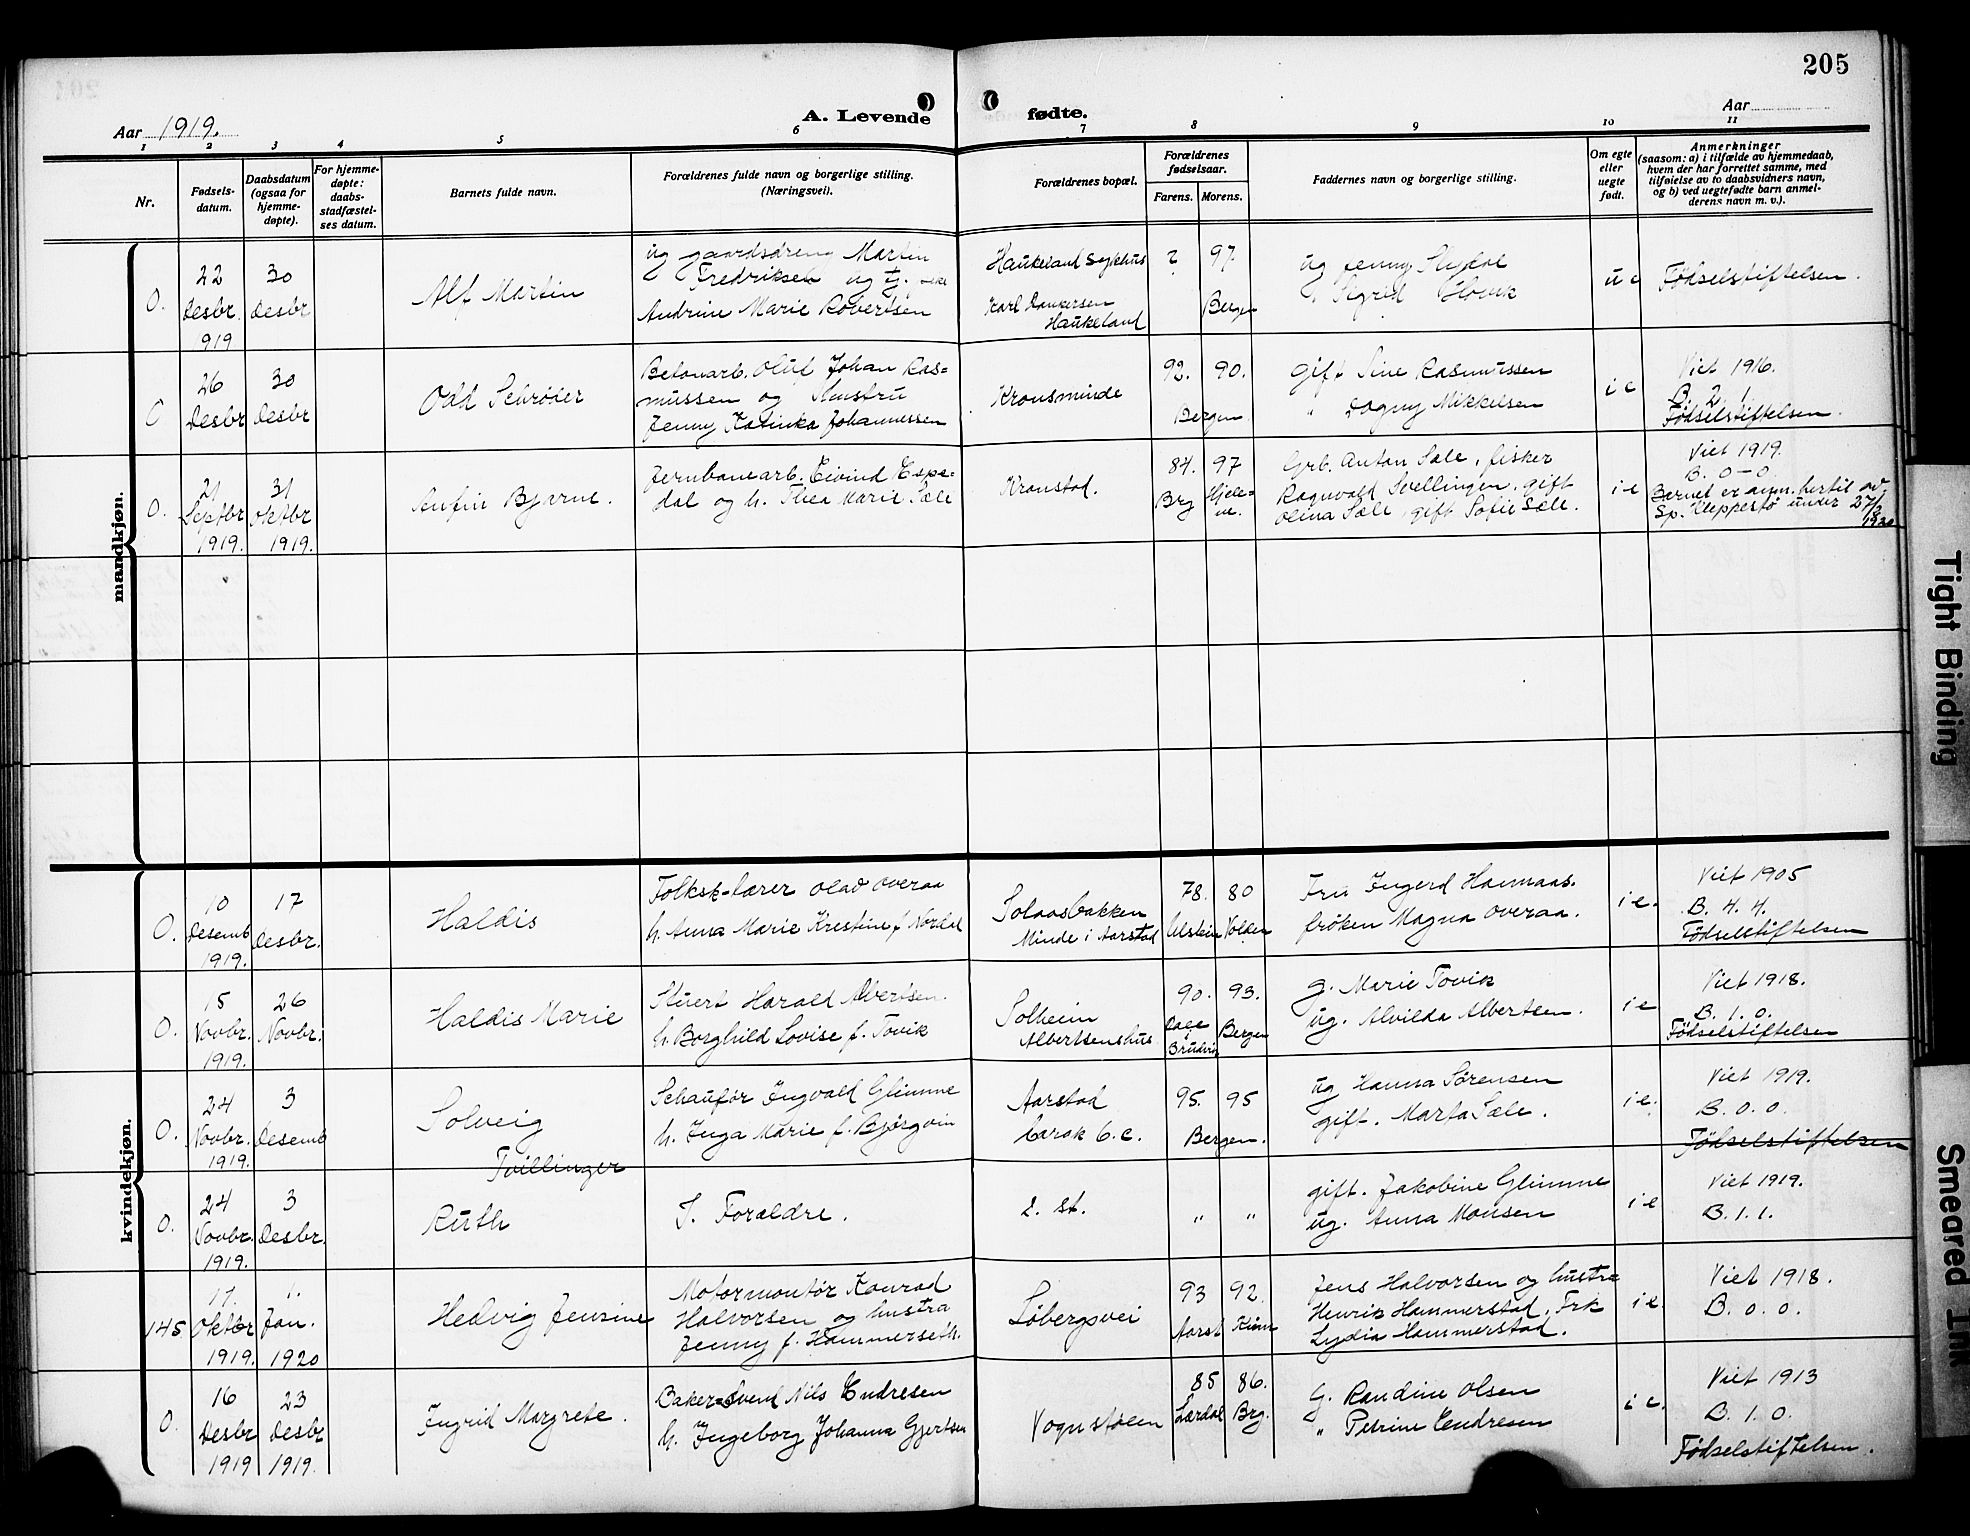 205
Aar 1919.
A. Levende fødte.
Aar
1 2 3 4 5 6 7 8 9 10 11
Nr.
Fødsels-
datum.
Daabsdatum
(ogsaa for
hjemme-
døpte).
For hjemme-
døpte:
daabs-
stadfæstel-
ses datum.
Barnets fulde navn.
Forældrenes fulde navn og borgerlige stilling.
(Næringsvei).
Forældrenes bopæl.
Forældrenes
fødselsaar.
Farens. Morens.
Faddernes navn og borgerlige stilling.
Om egte
eller
uegte
født.
Anmerkninger
(saasom: a) i tilfælde av hjemmedaab,
hvem der har forrettet samme, med
tilføielse av to daabsvidners navn,
og b) ved uegtefødte barn anmel-
derens navn m. v.).
mandkjøn.
0.
22
Desbr.
919
30
Desbr
Alf Martin
ug gaardsdreng Martin
Fredriksen ug tj.
Andrine Marie Robertsen
Haukeland Sykhus
Karl Dankersen
Haukeland
?
97
Bergen
ug Jenny
Sigrid
u e
Fødselstiftelsen.
0
26
Desbr
30
Desbr
Odd Schrøder
Betonarb. Oluf Johan Ras=
mussen og Hustru
Jenny Katinka Johannessen
Kronsminde
92. 90.
Bergen
gift Sine Rasmussen
" Dagny Mikkelsen
i e
Viet 1916.
B. 2. 1.
Fødselstiftelsen.
0.
21
Septbr
1919.
31
Oktbr
1919.
Arnfin Bjarne.
Jernbanearb. Eivind Espe=
dal og h. Thea Marie Sæle
Kronstad.
84. 97
Brg Hjelme-
Grb. Anton Sæle, fisker
Ragnvald Svellingen, gift
Olina Sæle, gift Sofie Sæle.
i e
Viet 1919.
B. 0-0.
Barnet er anm. hertil av
Sp. Kleppestø under 27/2
1920
kvindekjøn.
0.
10
Desemb
1919.
17
Desbr.
Haldis
Folksk=lærer Olav Overaa
h. Anna Marie Krestine f.
Solaasbakken
Minde i Aarstad
78. 80
Ulstein Volden
Fru Ingerd
frøken Magna Overaa.
i e.
Viet 1905
B. 4. 4.
Fødselstiftelsen
0.
15
Novbr.
1919.
26
Novbr.
Haldis Marie
Stuert Harald Albertsen.
h. Borghild Lovise f. Tovik
Solheim
Albertsenshus
90. 93.
Dale
i
Bergen
g. Marie Tovik
ug. Alvilda Albertsen.
i e
Viet 1918.
B. 1. 0.
Fødselstiftelsen
0.
24
Novbr.
1919.
3
Desemb
Solveig
Tvillinger
Schaufør Ingvald Glimme
h. Inga Marie f. Bjørgvin
Aarstad
6. c.
95. 95
Bergen.
ug Hanna Sørensen
gift. Marta Sæle.
i e.
Viet 1919.
B. 0. 0.
Fødselstiftelsen
0.
24
Novbr.
1919.
3
Desbr.
Ruth
S. Forældre.
S. St.
" "
gift. Jakobine Glimme
ug. Anna Monsen
i e
Viet 1919.
B. 1. 1.
145
17.
Oktbr
1919.
1.
Jan.
1920
Hedvig Jensine
Motormontør Konrad
Halvorsen og hustru
Jenny f. Hammerseth.
Løbergsvei
93 92.
Aarst
Jens Halvorsen og hustru
Henrik Hammerstad. Frk
Lydia Hammerstad.
i e.
Viet 1918.
B. 0. 0.
0.
16
Desbr
1919
23
Desbr
1919.
Ingrid Margrete.
Baker=Svend Nils Endresen
h. Ingeborg Johanna Gjertsen
Vognstølen
85 86.
Lærdal Brg.
G. Randine Olsen
" Petrine Endresen
i e.
Viet 1913
B. 1. 0.
Fødselstiftelsen.
Tight Binding
Smeared Ink